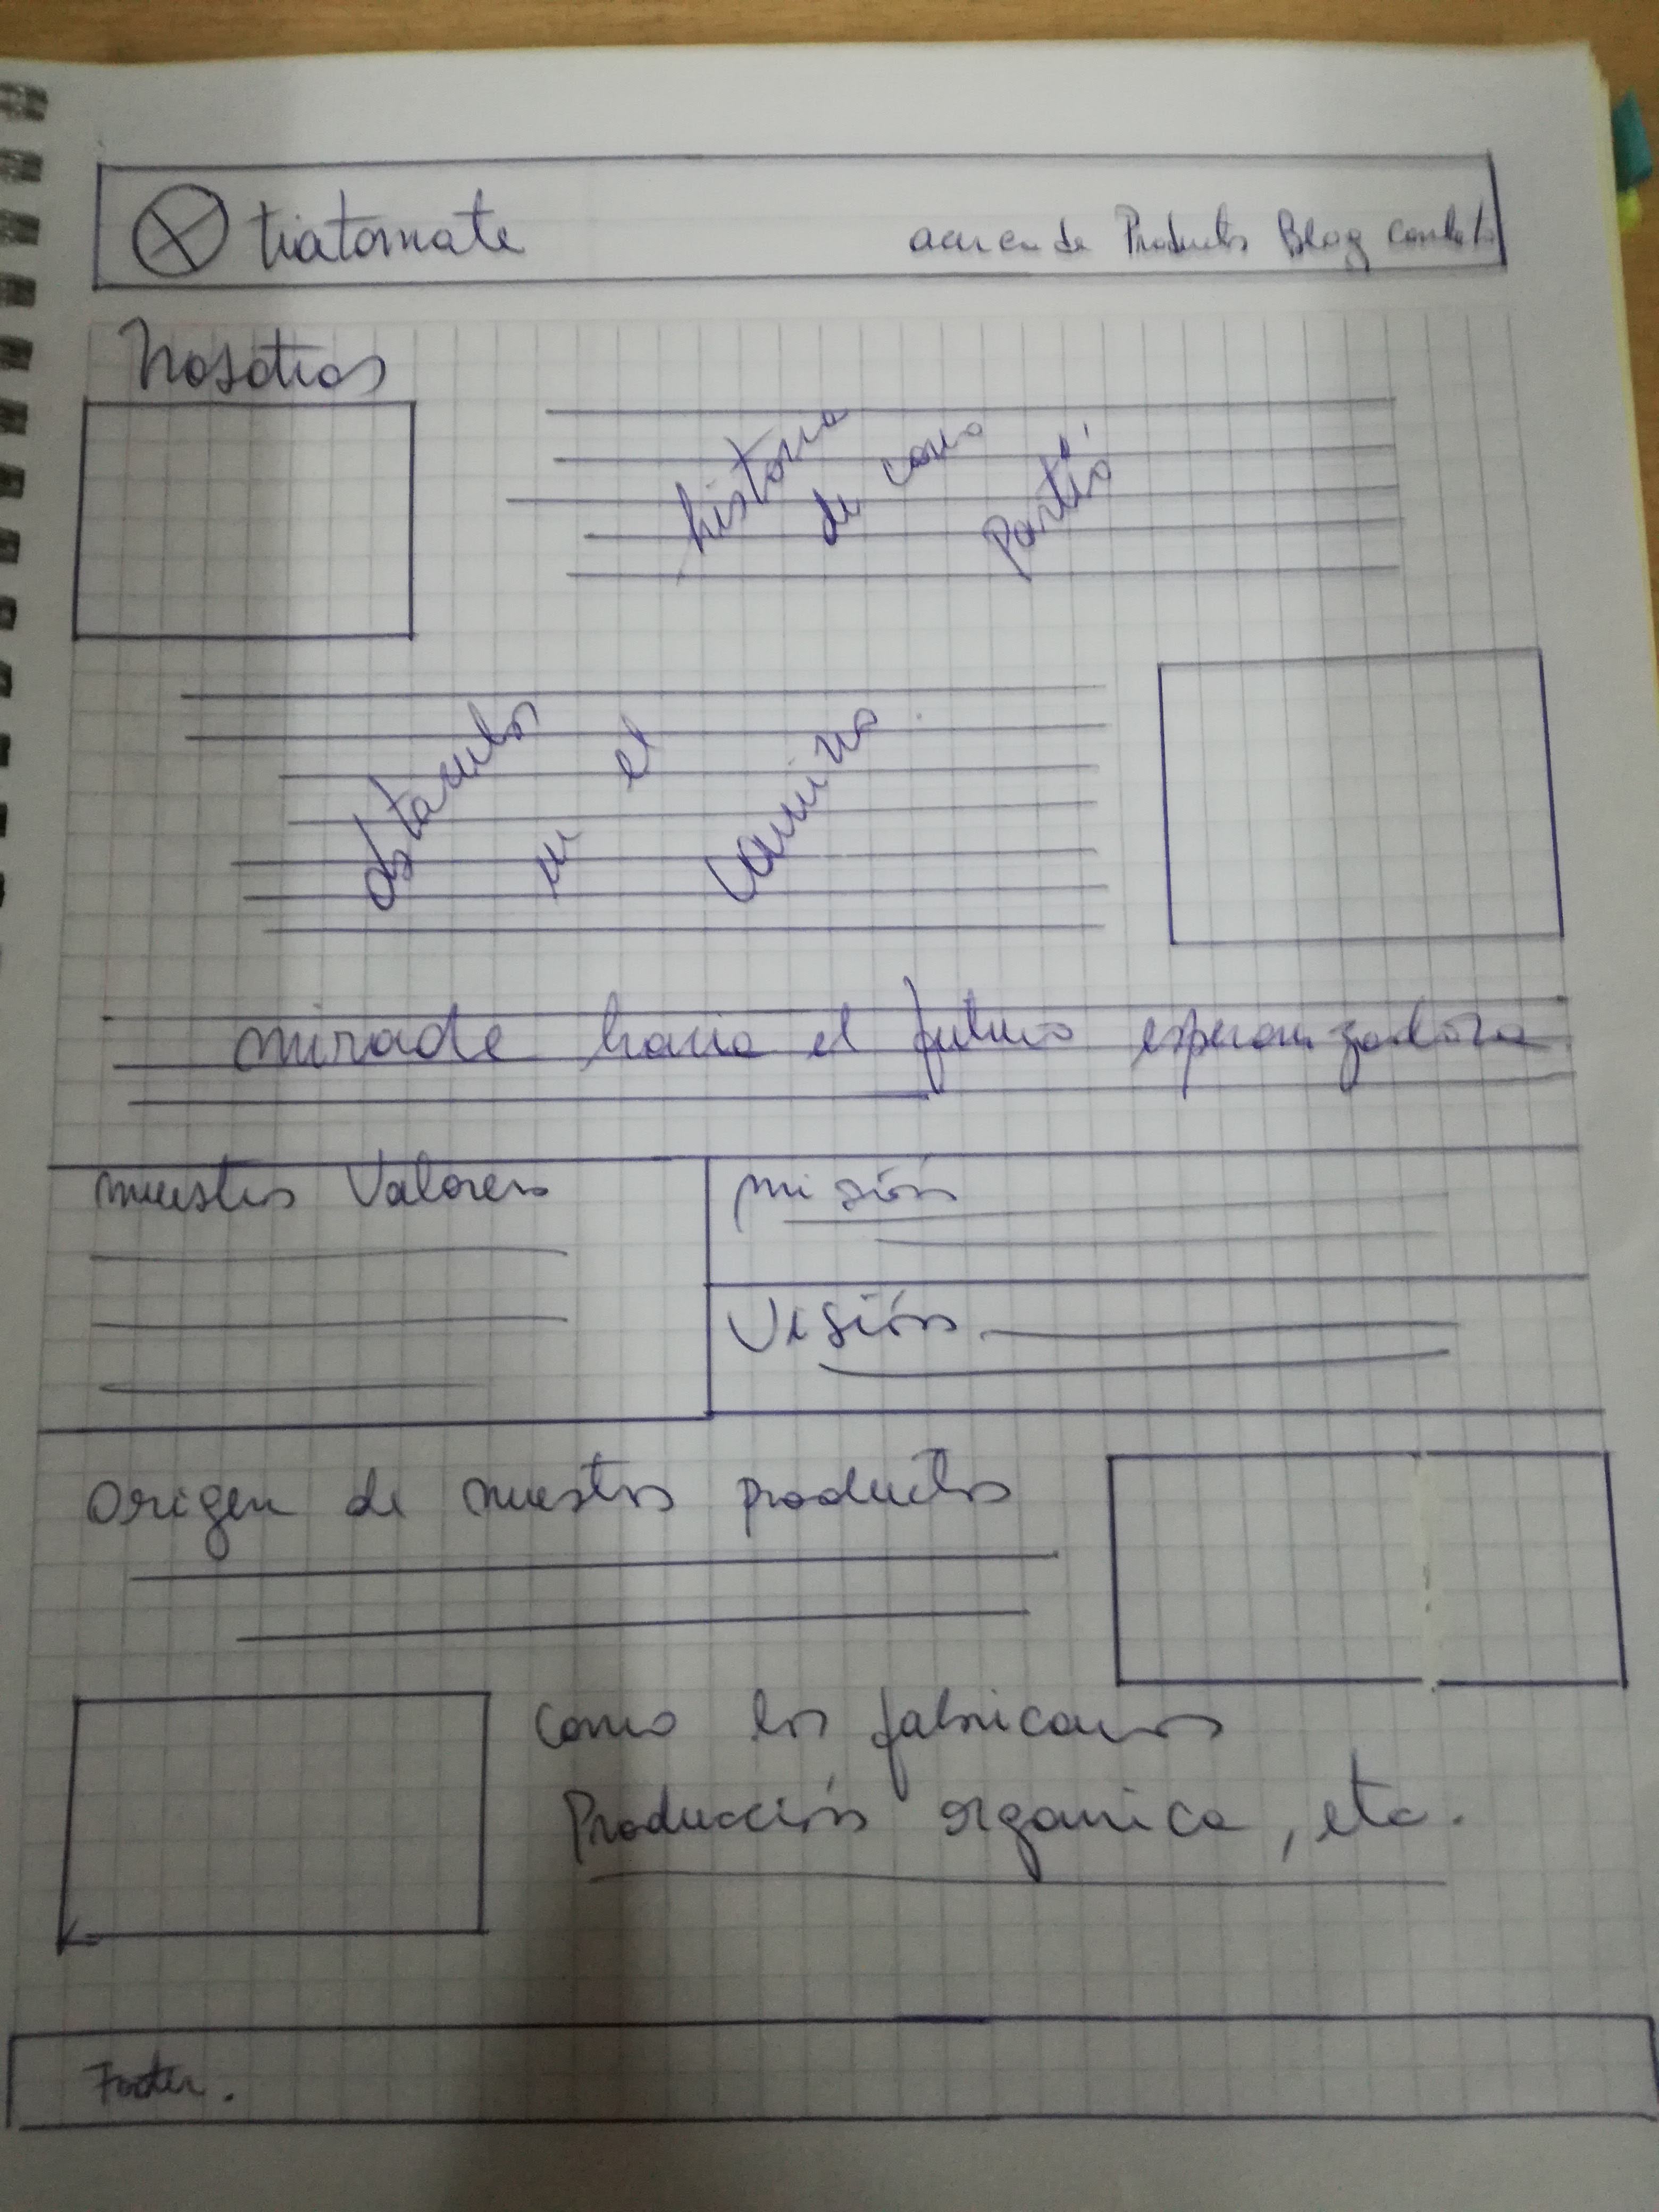 tiatomate
acerca de Productos Blog contacto
Nosotros
historia de como partió
obstaculos en el camino.
mirada hacia el futuro esperanzadora.
nuestros Valores
misión
Visión
origen de nuestros productos
como los fabricamos
Producción organica, etc.
Footer.